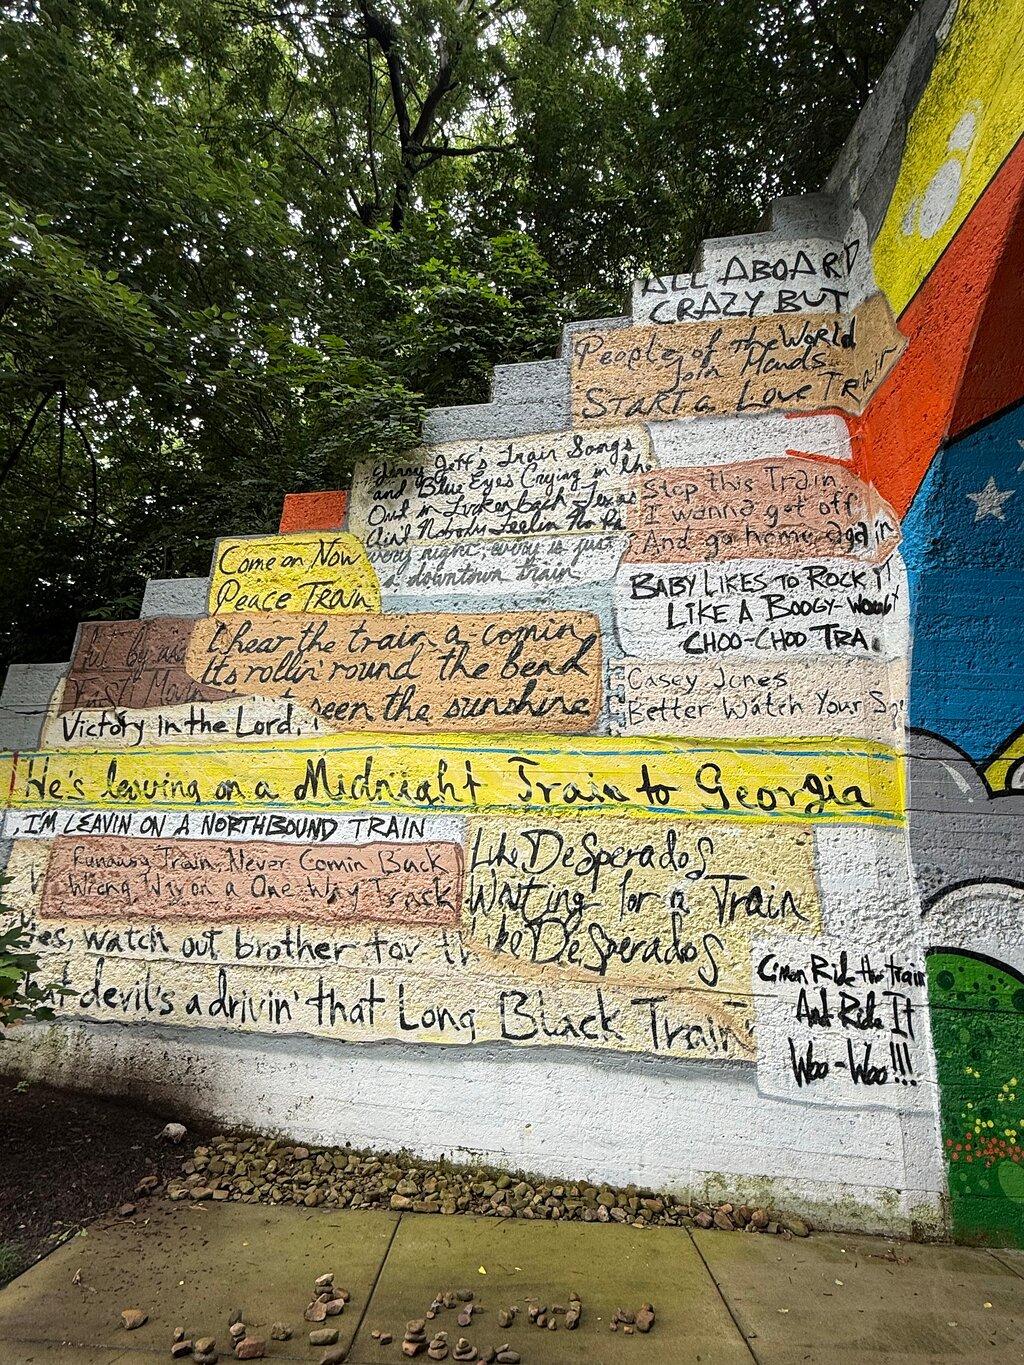 ALL ABOARD
CRAZY BUT
People of the World
Join Hands
START a Love Train
Jerry Jeff's Train Songs
and Blue Eyes Crying in the
Out in Luckenbach Texas
Ain't Nobody Feelin No Pa
Stop this Train
I wanna get off
And go home again
Come on Now
Peace Train
every night, away is just
a downtown train
BABY LIKES TO ROCK IT
LIKE A BOOGY-WOOGY
CHOO-CHOO TRA
I hear the train a comin
Its rollin' round the bend
seen the sunshine
Casey Jones
Better Watch Your S
Victory in the Lord,
He's leaving on a Midnight Train to Georgia
I'M LEAVIN ON A NORTHBOUND TRAIN
Runaway Train, Never Comin Back
Wrong Way on a One-Way Track
Like DeSperados
Waiting for a Train
like DeSperados
es, watch out brother for th
hat devil's a drivin' that Long Black Train
C'mon Ride the train
And Ride It
Woo-Woo!!!